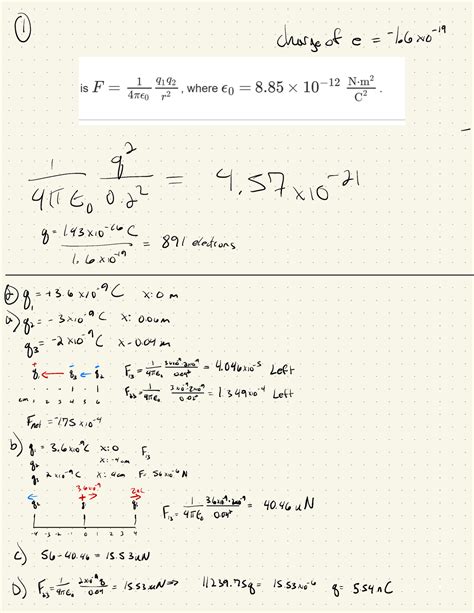 ①
charge of e = -1.6x10^-19
is F = 1/4πϵ0 q1q2/r^2, where ϵ0 = 8.85 × 10^−12 N·m^2/C^2.
1/4πϵ0 q^2/0.2^2 = 4.57 x10^-21
q= 1.43x10^-16 C / 1.6x10^-19 = 891 electrons
② q1 = +3.6 x10^-9 C x: 0 m
a) q2 = -3x10^-9 C x: 0.06m
q3 = -2x10^-9 C x- 0.04 m
F13 = 1/4πϵ0 3.6x10^-9·2x10^-9/0.04^2 = 4.046x10^-5 Left
F23 = 1/4πϵ0 3x10^-9·2x10^-9/0.02^2 = 1.349x10^-4 Left
cm 1 2 3 4 5 6
Fnet = -1.75 x10^-4
b) q1 = 3.6x10^-9 C x: 0 F13
q2 x: -4cm
q3 2x10^-9 C x: 4cm F= 56x10^-6 N
3.6x10^-9 2nC
F13 = 1/4πϵ0 3.6x10^-9·2x10^-9/0.04^2 = 40.46 uN
-4 -3 -2 -1 0 1 2 3 4
c) 56-40.46 = 15.53uN
D) F23 = 1/4πϵ0 2x10^-9 q/0.08^2 = 15.53uN => 11239.75q = 15.53x10^-6 q= 5.54nC